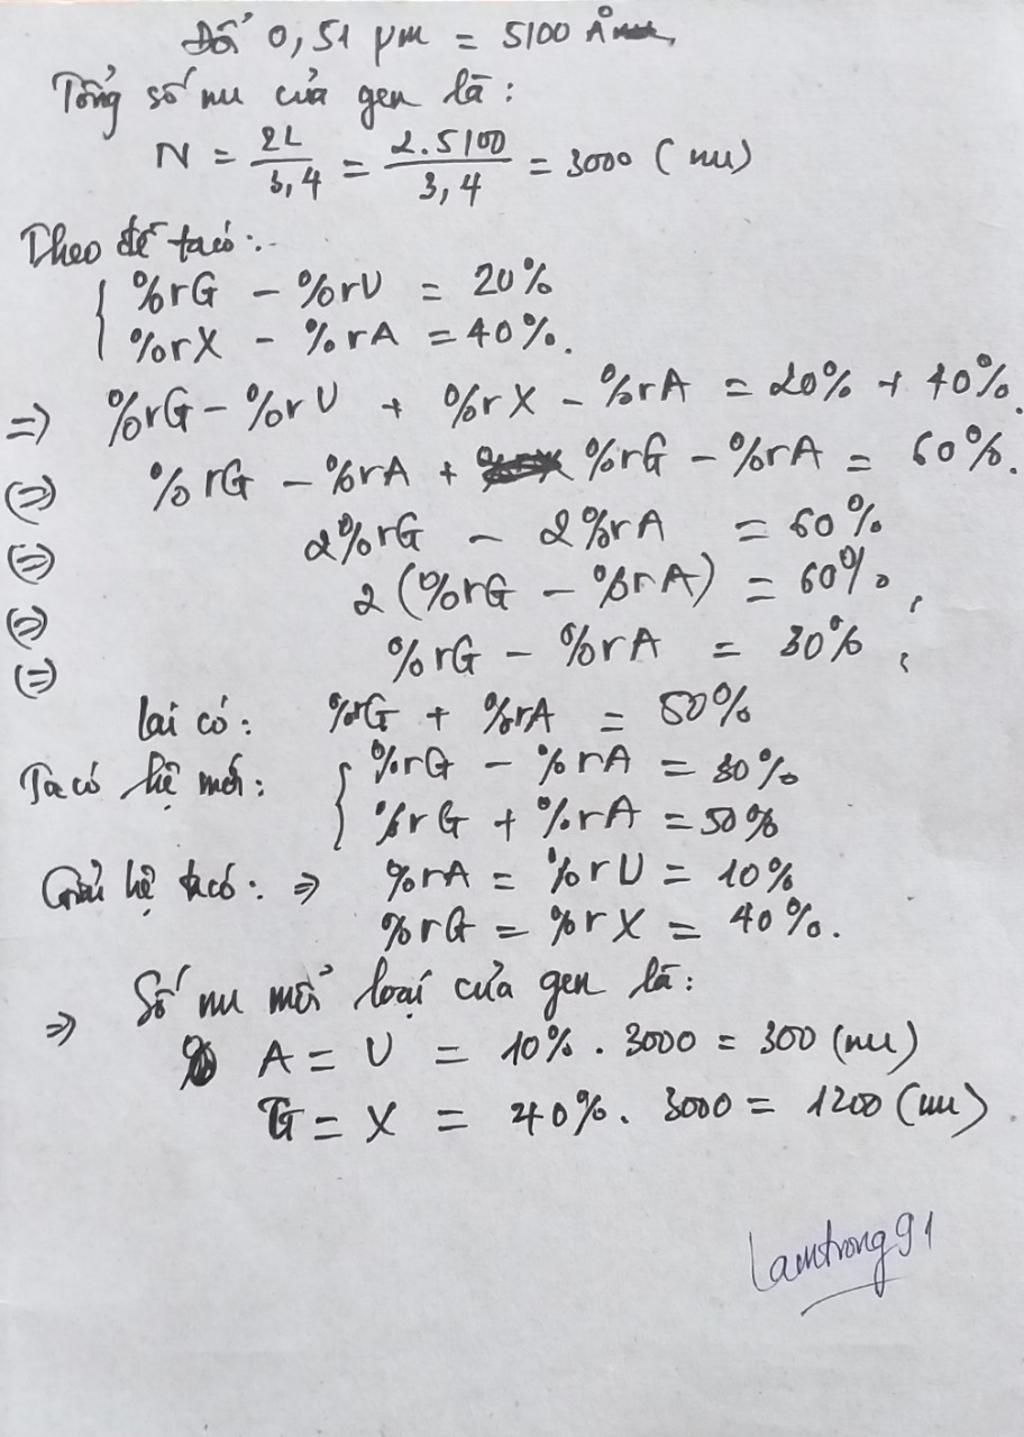 Đổi 0,51 µm = 5100 Å
Tổng số nu của gen là:
N = 2L / 3,4 = 2.5100 / 3,4 = 3000 (nu)
Theo đề ta có:
{ %rG - %rU = 20%
%rX - %rA = 40%.
=> %rG - %rU + %rX - %rA = 20% + 40%.
(=) %rG - %rA + %rG - %rA = 60%.
(=) 2%rG - 2%rA = 60%
(=) 2(%rG - %rA) = 60%,
(=) %rG - %rA = 30%,
lại có: %rG + %rA = 50%
Ta có hệ mới: { %rG - %rA = 30%
%rG + %rA = 50%
Giải hệ ta có: => %rA = %rU = 10%
%rG = %rX = 40%.
=> Số nu mỗi loại của gen là:
A = U = 10%. 3000 = 300 (nu)
G = X = 40%. 3000 = 1200 (nu)
Lamtrong91